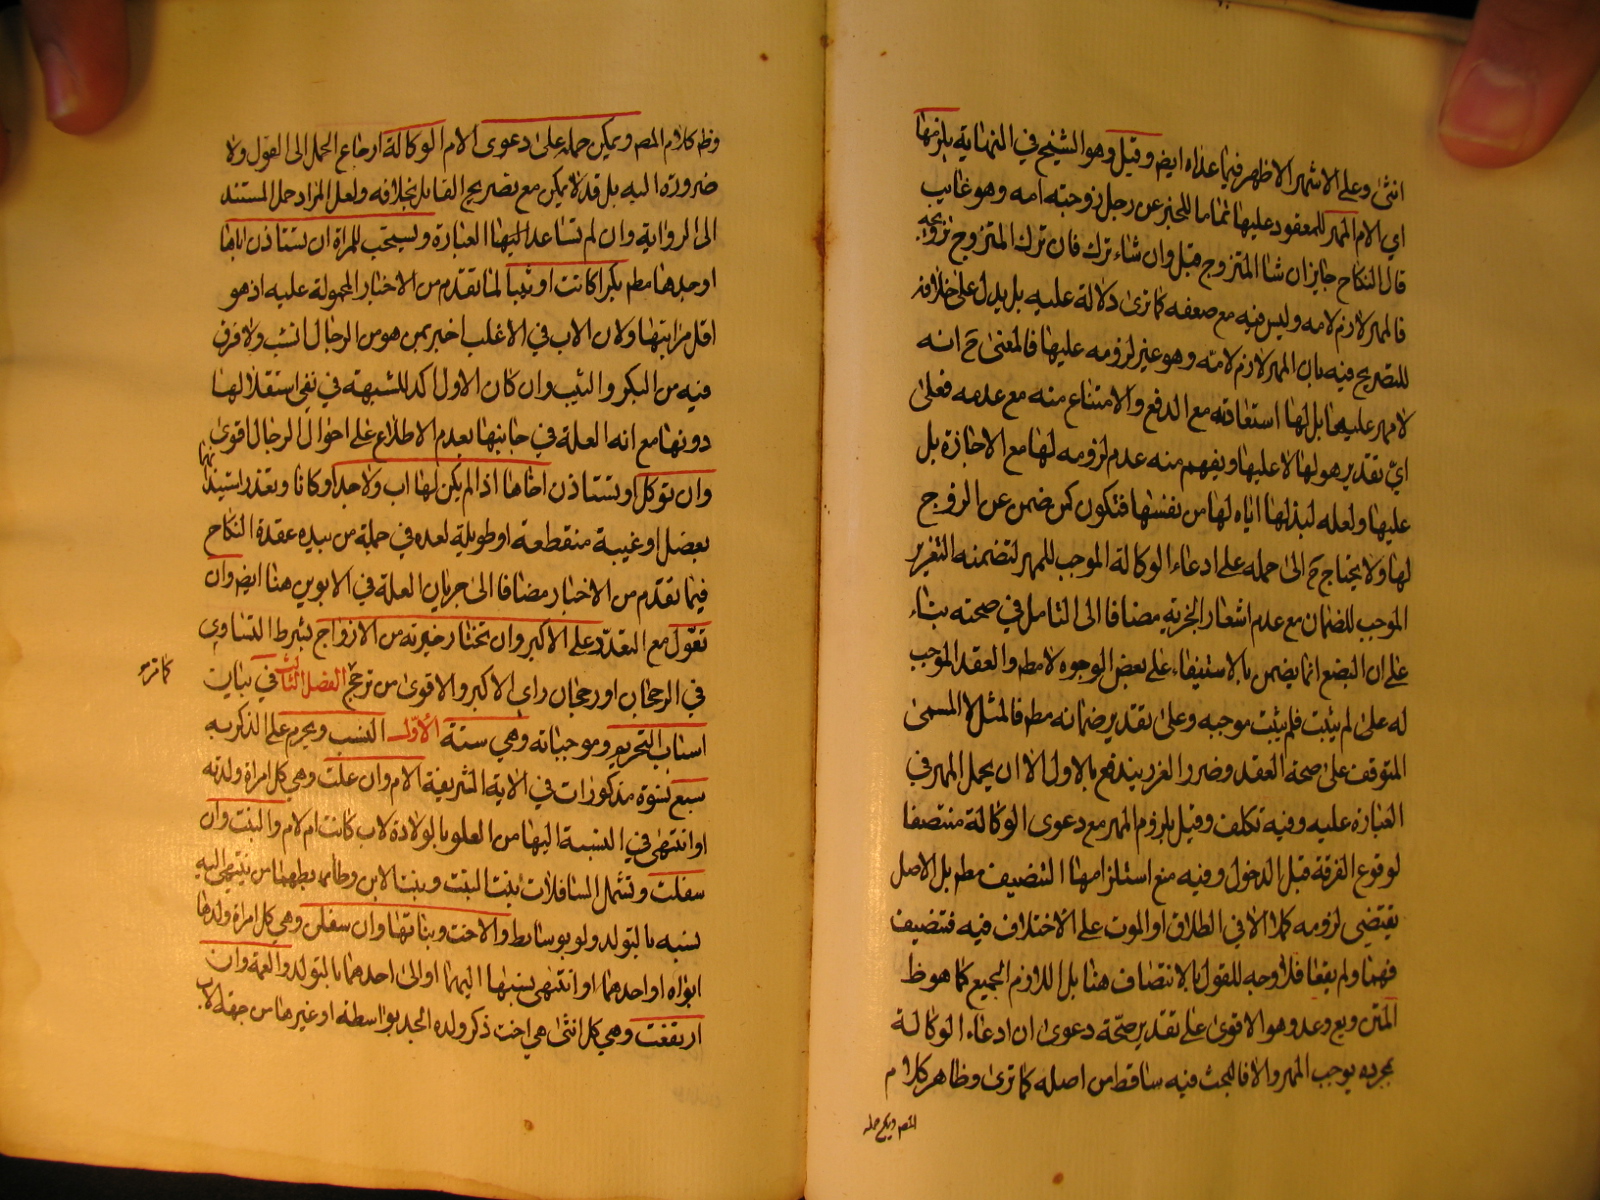 انثى وعلى الاشهر الاظهر فيما عداه ايض وقيل وهو الشيخ في النهاية يلزمها
اي الام المهر للمعقود عليها تماما للخبر عن رجل زوجته امه وهو غايب
قال النكاح جايز ان شا المتزوج قبل وان شاء ترك فان ترك المتزوج تزويجه
فالمهر لازم لامه وليس فيه مع ضعفه كما ترى دلالة عليه بل يدل على خلافه
للتصريح فيه بان المهر لازم لامه وهو غير لزومه عليها فالمعنى ح انه
لا مهر عليه بل لها استعادته مع الدفع والامتناع منه مع عدمه فعلى
اي تقدير هو لها لا عليها ويفهم منه عدم لزومه لها مع الاجازة بل
عليها ولعله لبذلها اياه لها من نفسها فتكون كمن ضمن عن الزوج
لها ولا يحتاج ح الى حمله على ادعاء الوكالة الموجب للمهر لتضمنه التغرير
الموجب للضمان مع عدم اشعار الخبر به مضافا الى التامل في صحته بناء
على ان البضع انما يضمن بالاستيفاء على بعض الوجوه لا مطم والعقد الموجب
له على لم يثبت فلم يثبت موجبه وعلى تقدير ضمانه مطم فالمثل لا المسمى
المتوقف على صحة العقد وضرر الغرر يندفع بالاول الا ان يحمل المهر في
العبارة عليه وفيه تكلف وقيل يلزم المهر مع دعوى الوكالة منتصفا
لوقوع الفرقة قبل الدخول وفيه منع استلزامها التنصيف مطم بل الاصل
يقتضي لزومه كملا الا في الطلاق او الموت على الاختلاف فيه فتنصيف
فيهما ولم يقعا فلا وجه للقول بالانتصاف هنا بل اللازم الجميع كما هو ظ
المتن ويع وعد وهو الاقوى على تقدير صحة دعوى ان ادعاء الوكالة
بمجرده يوجب المهر والا فالبحث فيه ساقط من اصله كما ترى وظاهر كلام
المصم ويمكن حمله
وظم كلام المصم ويمكن حمله على دعوى الام الوكالة ارجاع الحمل الى القول ولا
ضرورة اليه بل قد لا يمكن مع تصريح القايل بخلافه ولعل المراد حمل المستند
الى الرواية وان لم تساعد اليها العبارة ويستحب للمراة ان تستاذن اباها
او جدها مطم بكرا كانت او ثيبا لما تقدم من الاخبار المحمولة عليه اذ هو
اقل مراتبها ولان الاب في الاغلب اخبر بمن هو من الرجال انسب ولا فرق
فيه من البكر والثيب وان كان الاول اكد للشبهة في نفي استقلالها
دونها مع انه العلة في جانبها بعدم الاطلاع على احوال الرجال اقوى
وان توكل او تستاذن اخاها اذا لم يكن لها اب ولا جد او كانا وتعذر استيذانهما
بعضل او غيبة منقطعة او طويلة لعده في جملة من بيده عقدة النكاح
فيما تقدم من الاخبار مضافا الى جريان العلة في الابوين هنا ايض وان
تعول مع التعدد على الاكبر وان تختار خيرته من الازواج بشرط التساوي
في الرجحان او رجحان راي الاكبر والاقوى من ترجح الفصل الثالث في بيان
كما مر
اسباب التحريم وموجباته وهي ستة الاول النسب ويحرم على الذكر به
سبع نسوة مذكورات في الاية الشريفة الام وان علت وهي كل امراة ولدته
او انتهى في النسبة اليها من العلو بالولادة لاب كانت ام لام والبنت وان
سفلت وتشمل السافلات بنت البنت وبنت الابن وضابطهما من ينتهي اليه
نسبه بالتولد ولو بوسايط والاخت وبناتها وان سفلن وهي كل امراة ولدها
ابواه او احدهما او انتهى نسبها اليهما او الى احدهما بالتولد والعمة وان
ارتفعت وهي كل انثى هي اخت ذكر ولده الجد بواسطة او غيرها من جهة الاب